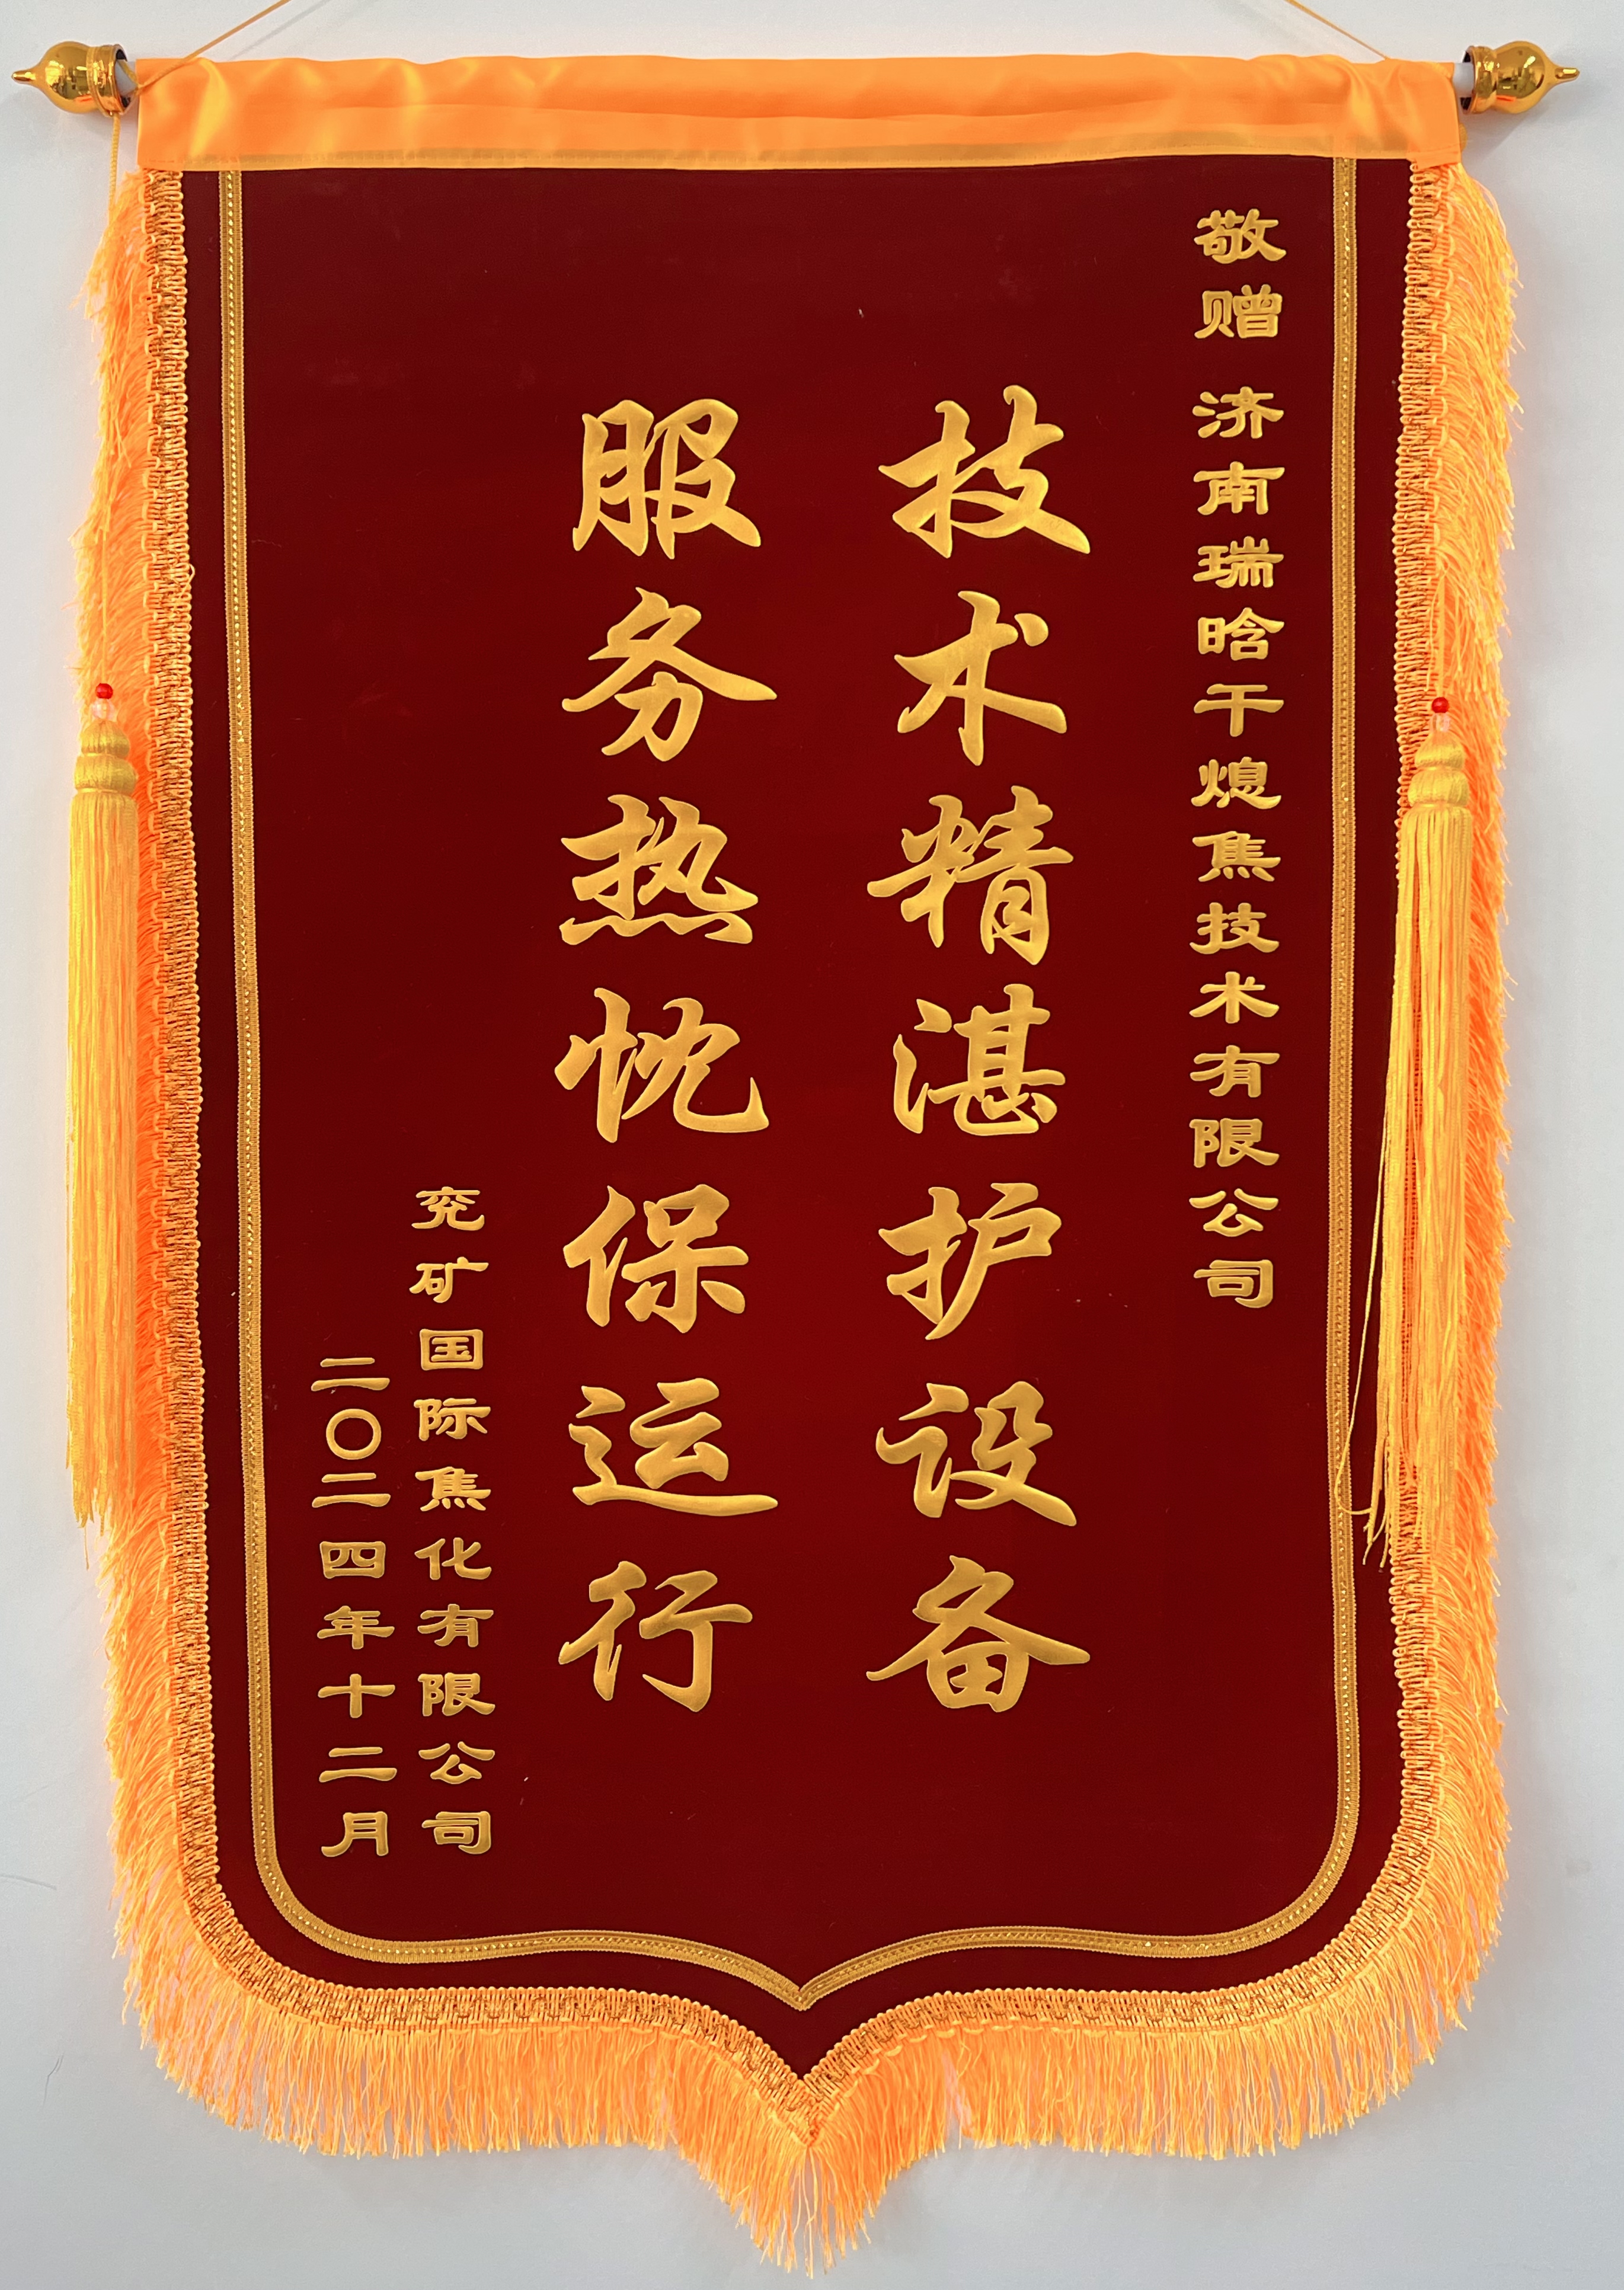 敬赠 济南瑞晗干熄焦技术有限公司
技术精湛护设备
服务热忱保运行
兖矿国际焦化有限公司
二〇二四年十二月